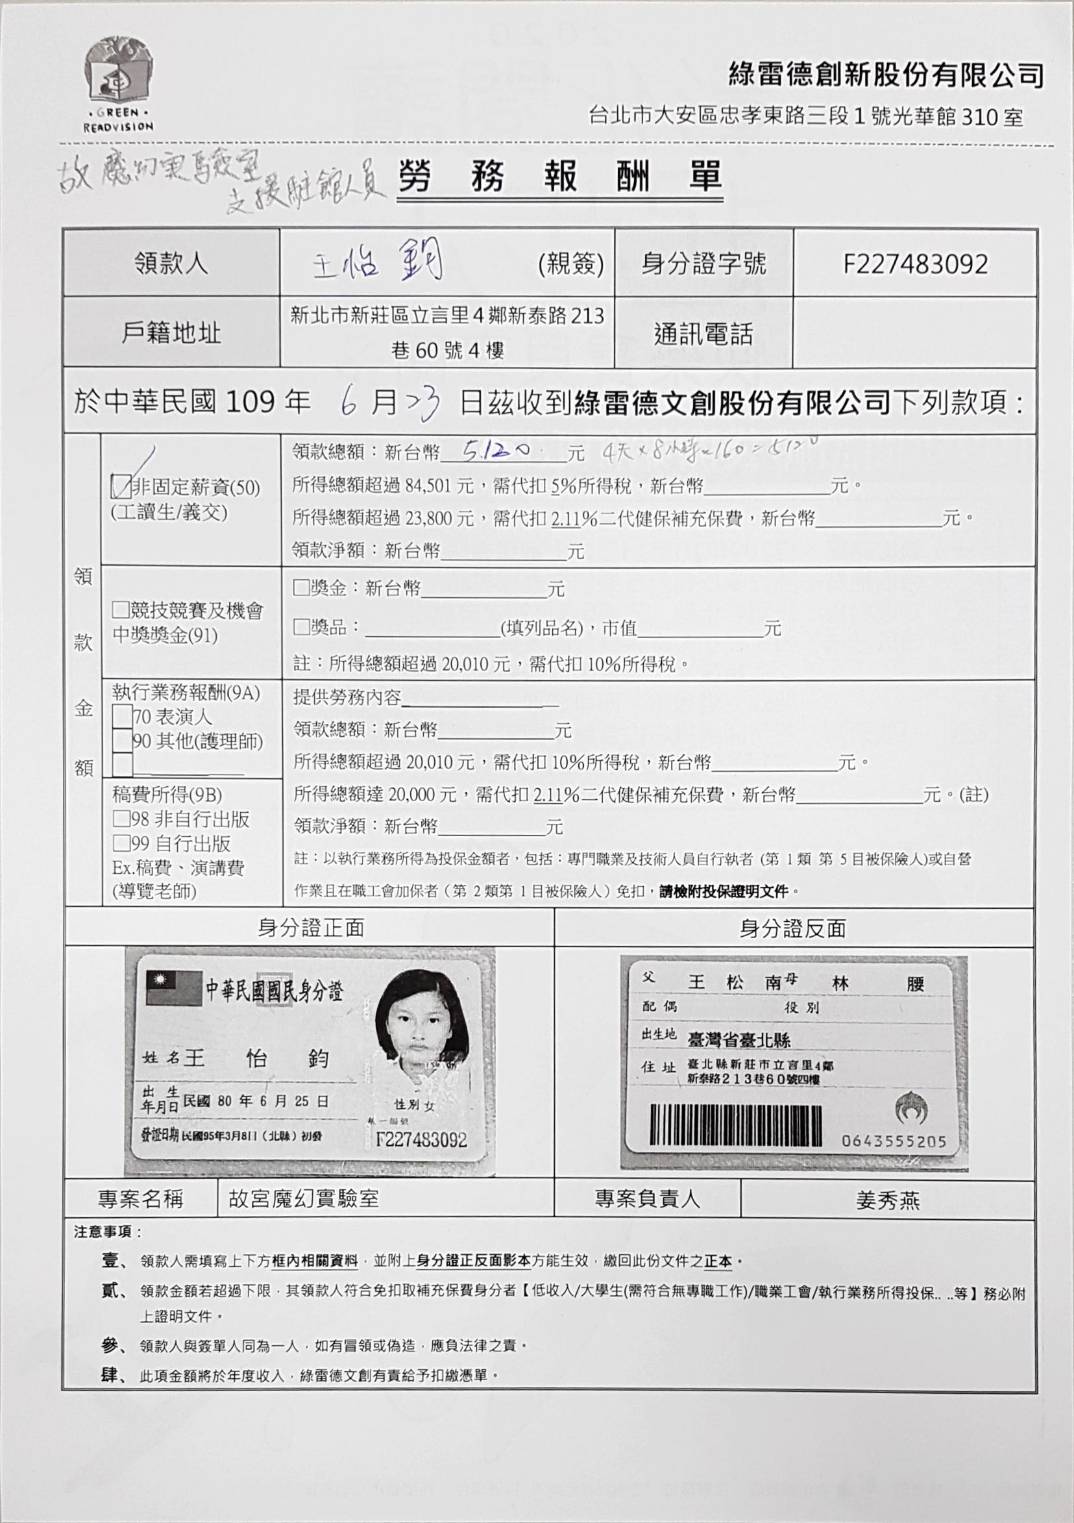 · GREEN ·
READVISION
綠雷德創新股份有限公司
台北市大安區忠孝東路三段1號光華館310室
故魔幻實驗室
支援駐館人員
勞務報酬單
領款人 王怡鈞 (親簽) 身分證字號 F227483092
戶籍地址 新北市新莊區立言里4鄰新泰路213
巷60號4樓 通訊電話
於中華民國109年 6月23日茲收到綠雷德文創股份有限公司下列款項：
領款金額
☑非固定薪資(50)
(工讀生/義交)
領款總額：新台幣 5,120 元 4天×8小時×160=5120
所得總額超過84,501元，需代扣5%所得稅，新台幣____元。
所得總額超過23,800元，需代扣2.11%二代健保補充保費，新台幣____元。
領款淨額：新台幣____元
□競技競賽及機會
中獎獎金(91)
□獎金：新台幣____元
□獎品：____(填列品名)，市值____元
註：所得總額超過20,010元，需代扣10%所得稅。
執行業務報酬(9A)
□70表演人
□90其他(護理師)
□____
稿費所得(9B)
□98非自行出版
□99自行出版
Ex.稿費、演講費
(導覽老師)
提供勞務內容____
領款總額：新台幣____元
所得總額超過20,010元，需代扣10%所得稅，新台幣____元。
所得總額達20,000元，需代扣2.11%二代健保補充保費，新台幣____元。(註)
領款淨額：新台幣____元
註：以執行業務所得為投保金額者，包括：專門職業及技術人員自行執者(第1類 第5目被保險人)或自營
作業且在職工會加保者（第2類第1目被保險人）免扣，請檢附投保證明文件。
身分證正面 身分證反面
中華民國國民身分證
姓名 王怡鈞
出生年月日 民國80年6月25日
性別 女
發證日期 民國95年3月8日（北縣）初發
統一編號
F227483092
父 王松南 母 林腰
配偶 役別
出生地 臺灣省臺北縣
住址 臺北縣新莊市立言里4鄰
新泰路213巷60號四樓
0643555205
專案名稱 故宮魔幻實驗室 專案負責人 姜秀燕
注意事項：
壹、領款人需填寫上下方框內相關資料，並附上身分證正反面影本方能生效，繳回此份文件之正本。
貳、領款金額若超過下限，其領款人符合免扣取補充保費身分者【低收入/大學生(需符合無專職工作)/職業工會/執行業務所得投保.. ..等】務必附
上證明文件。
參、領款人與簽單人同為一人，如有冒領或偽造，應負法律之責。
肆、此項金額將於年度收入，綠雷德文創有責給予扣繳憑單。